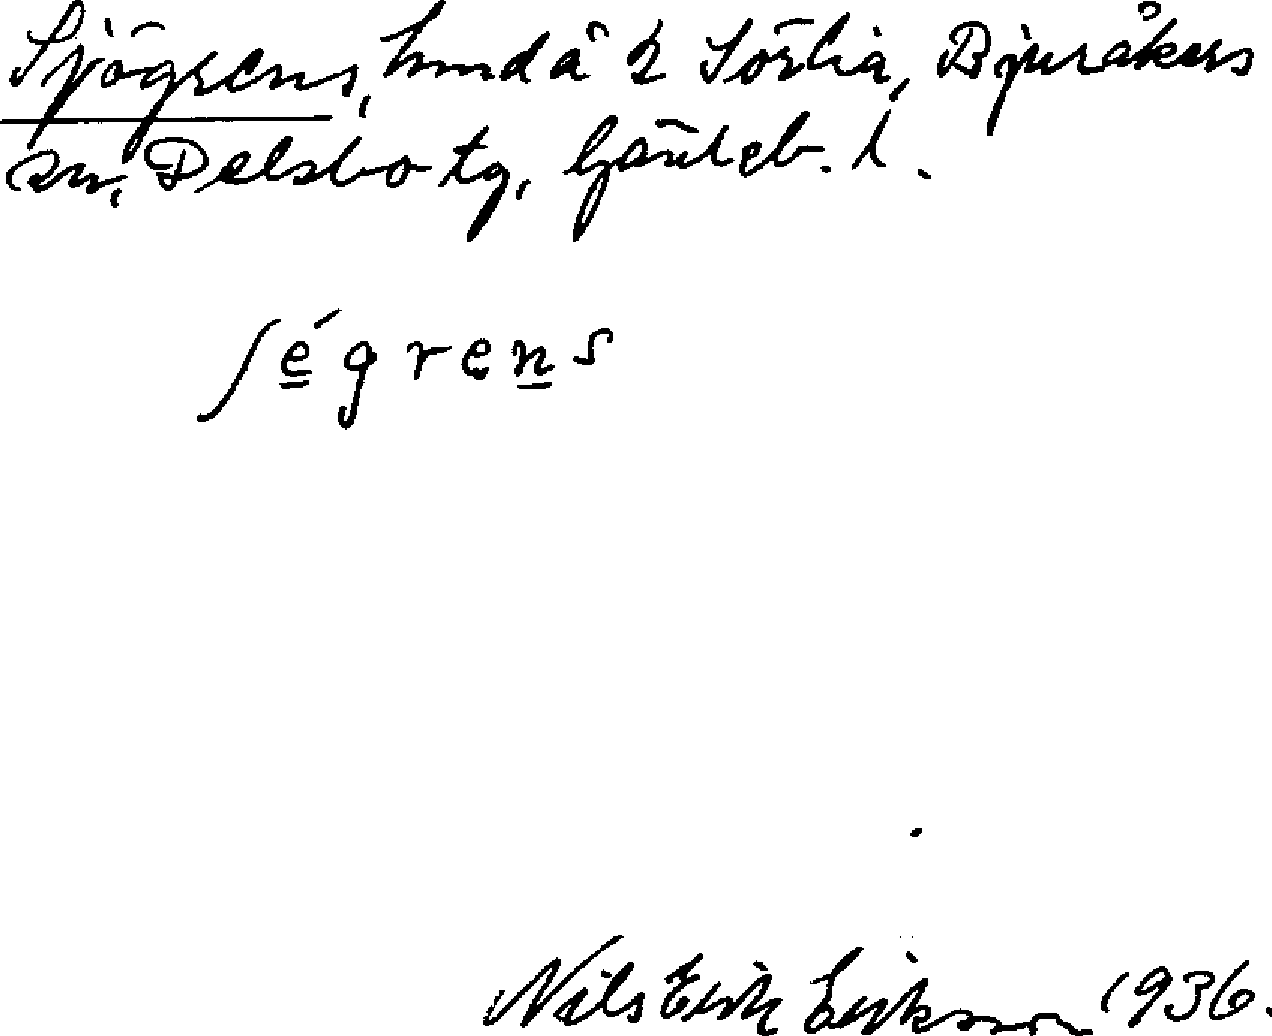 Sjögrens, hmd å 2 Sörlia, Bjuråkers
sn, Delsbo tg, Gävleb. l.
ʃé̳gren̲s
Nils Erik Eriksson 1936.